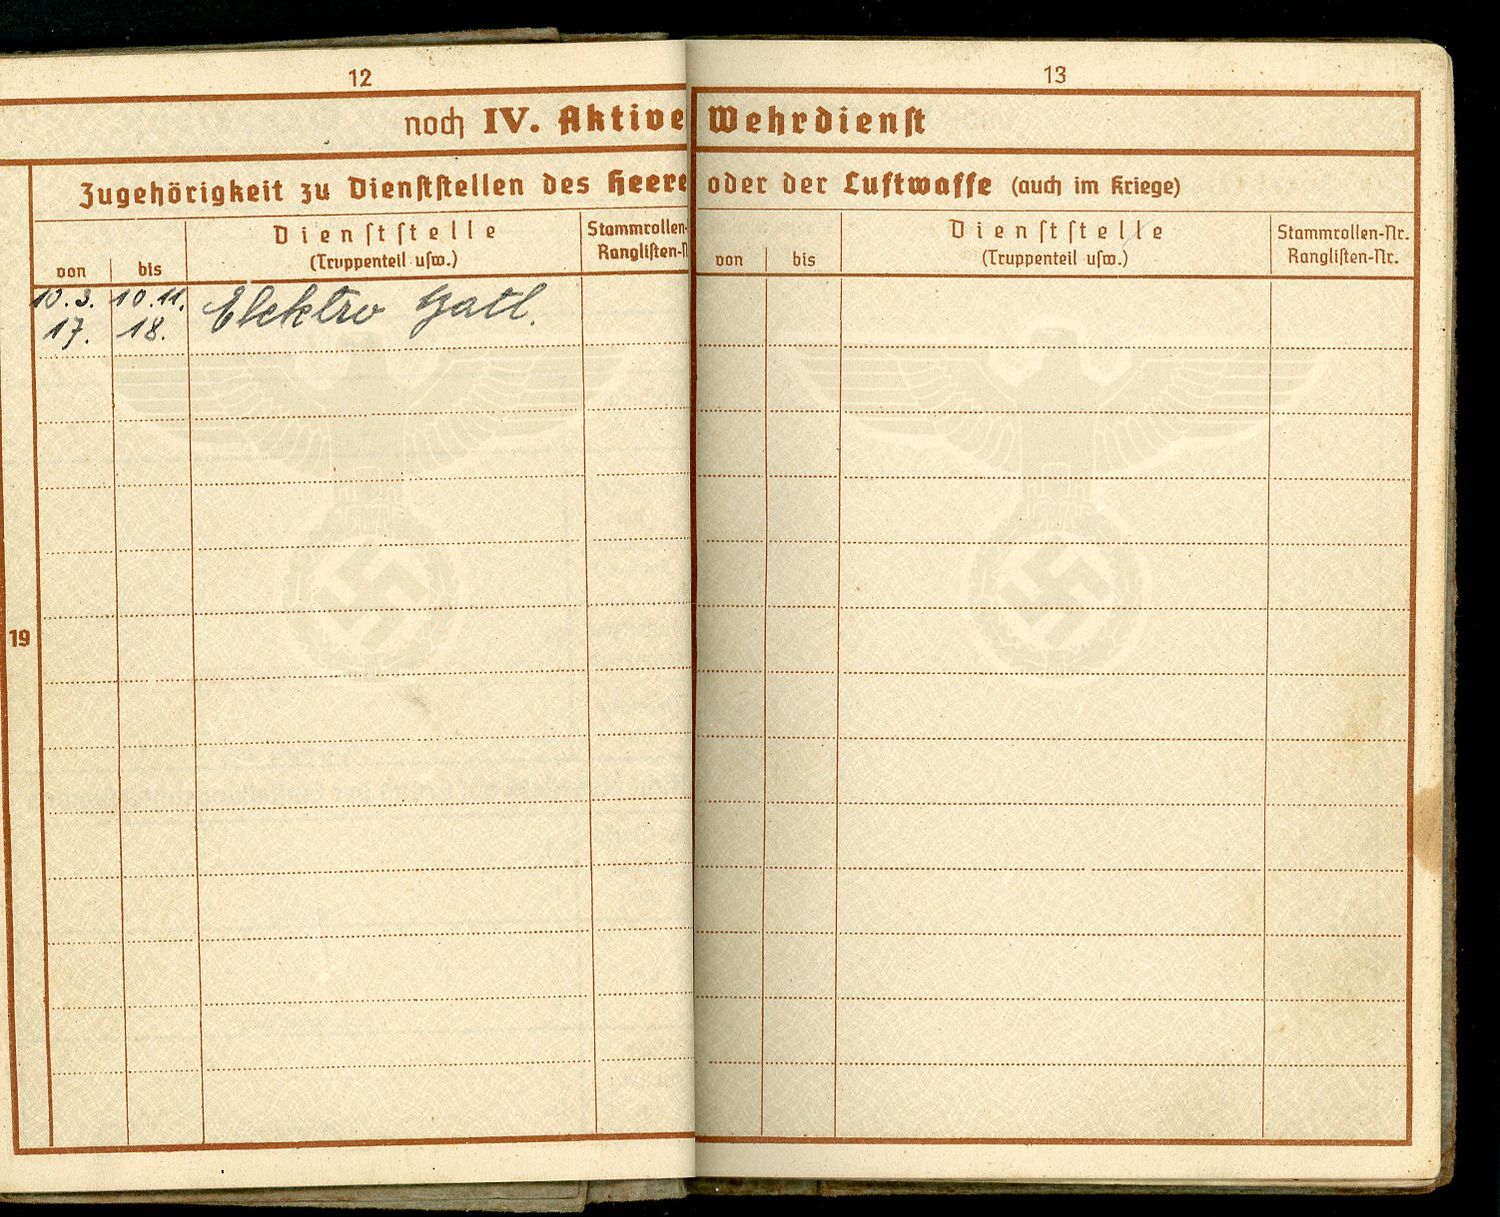 12
noch IV. Aktive
Zugehörigkeit zu Dienststellen des Heere
von
bis
Dienststelle
(Truppenteil usw.)
Stammrollen-
Ranglisten-N
10.3.
17.
10.11.
18.
Elektro
19
13
Wehrdienst
oder der Luftwaffe (auch im Kriege)
von
bis
Dienststelle
(Truppenteil usw.)
Stammrollen-Nr.
Ranglisten-Nr.